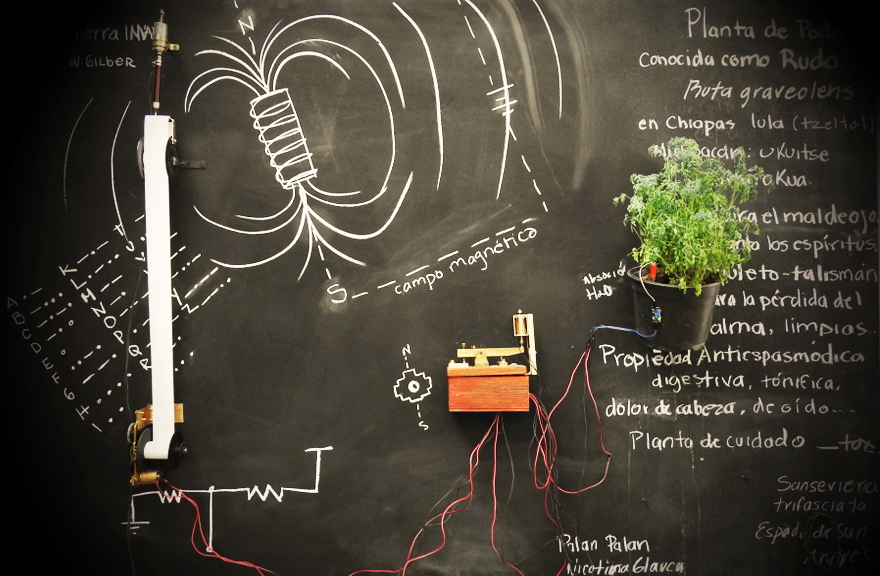 ierra
W. GILBER
N
S
campo magnético
K
L
M
N
O
P
Q
R
A
B
C
D
E
F
G
H
I
N
S
Planta de
Conocida como Ruda
Ruta graveolens
en Chiapas lula (tzeltal)
ukuitse
akua.
el mal de ojo
los espíritus,
uleto-talismán
la pérdida del
alma, limpias..
Absorció
H2O
Propiedad Antiespasmódica
digestiva, tónifica,
dolor de cabeza, de oído...
Planta de cuidado
Sansevieria
trifasciata
Espada de San
Palan Palan
Nicotiana Glauca